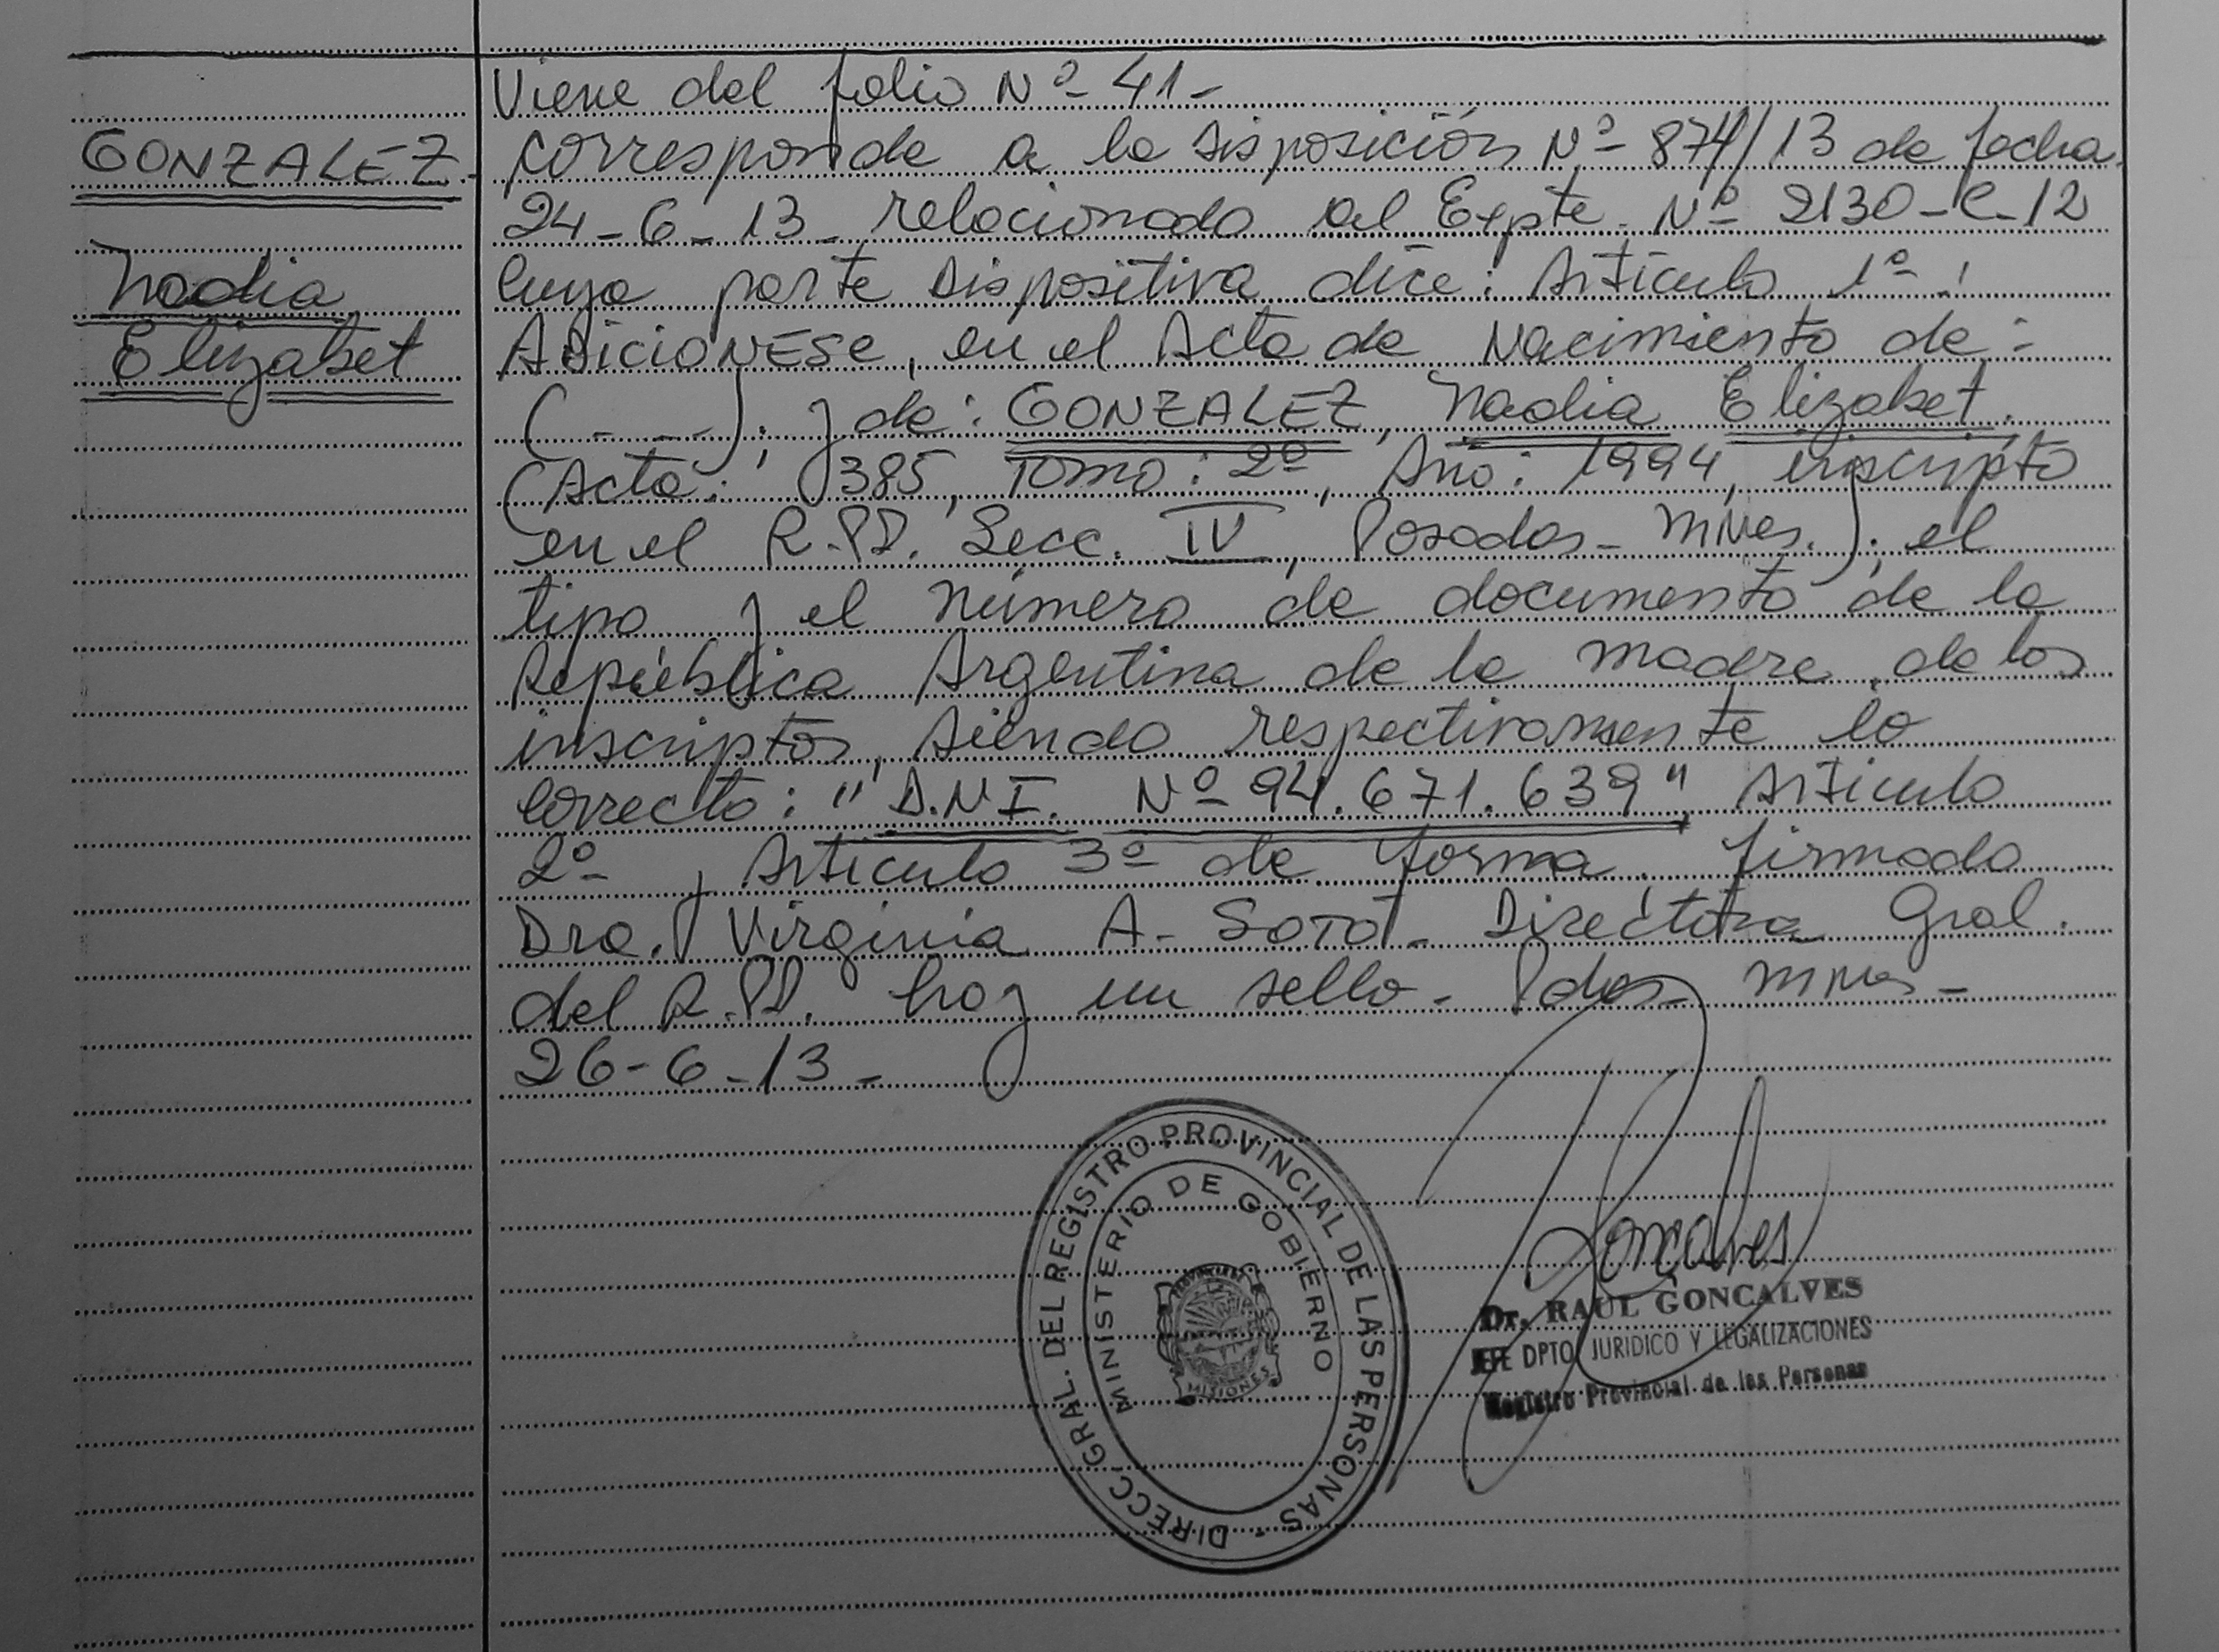 Viene del folio Nº 41-
GONZALEZ- corresponde a la Disposición Nº 874/13 de fecha
24-6-13- relacionado al Expte. Nº 2130-C-12
Nadia cuya parte Dispositiva dice: Artículo 1º:
Elizabet ADICIONESE, en el Acta de Nacimiento de:
(- - -). y de: GONZALEZ, Nadia Elizabet.
(Acta: 385, Tomo: 2º, Año: 1994, inscripto
en el R.P.P. Secc. IV, Posadas- Mnes.); el
tipo y el número de documento de la
República Argentina de la madre de los
inscriptos, siendo respectivamente lo
correcto: "D.N.I. Nº 94.671.639" Artículo
2º y Artículo 3º de forma. firmado
Dra. Virginia A. SOTO- Directora Gral.
del R.P.P. hay un sello- Pdas- Mnes-
26-6-13-
DIRECC. GRAL. DEL REGISTRO PROVINCIAL DE LAS PERSONAS -
MINISTERIO DE GOBIERNO
MISIONES
Goncalves
Dr. RAUL GONCALVES
JEFE DPTO JURIDICO Y LEGALIZACIONES
Registro Provincial de las Personas